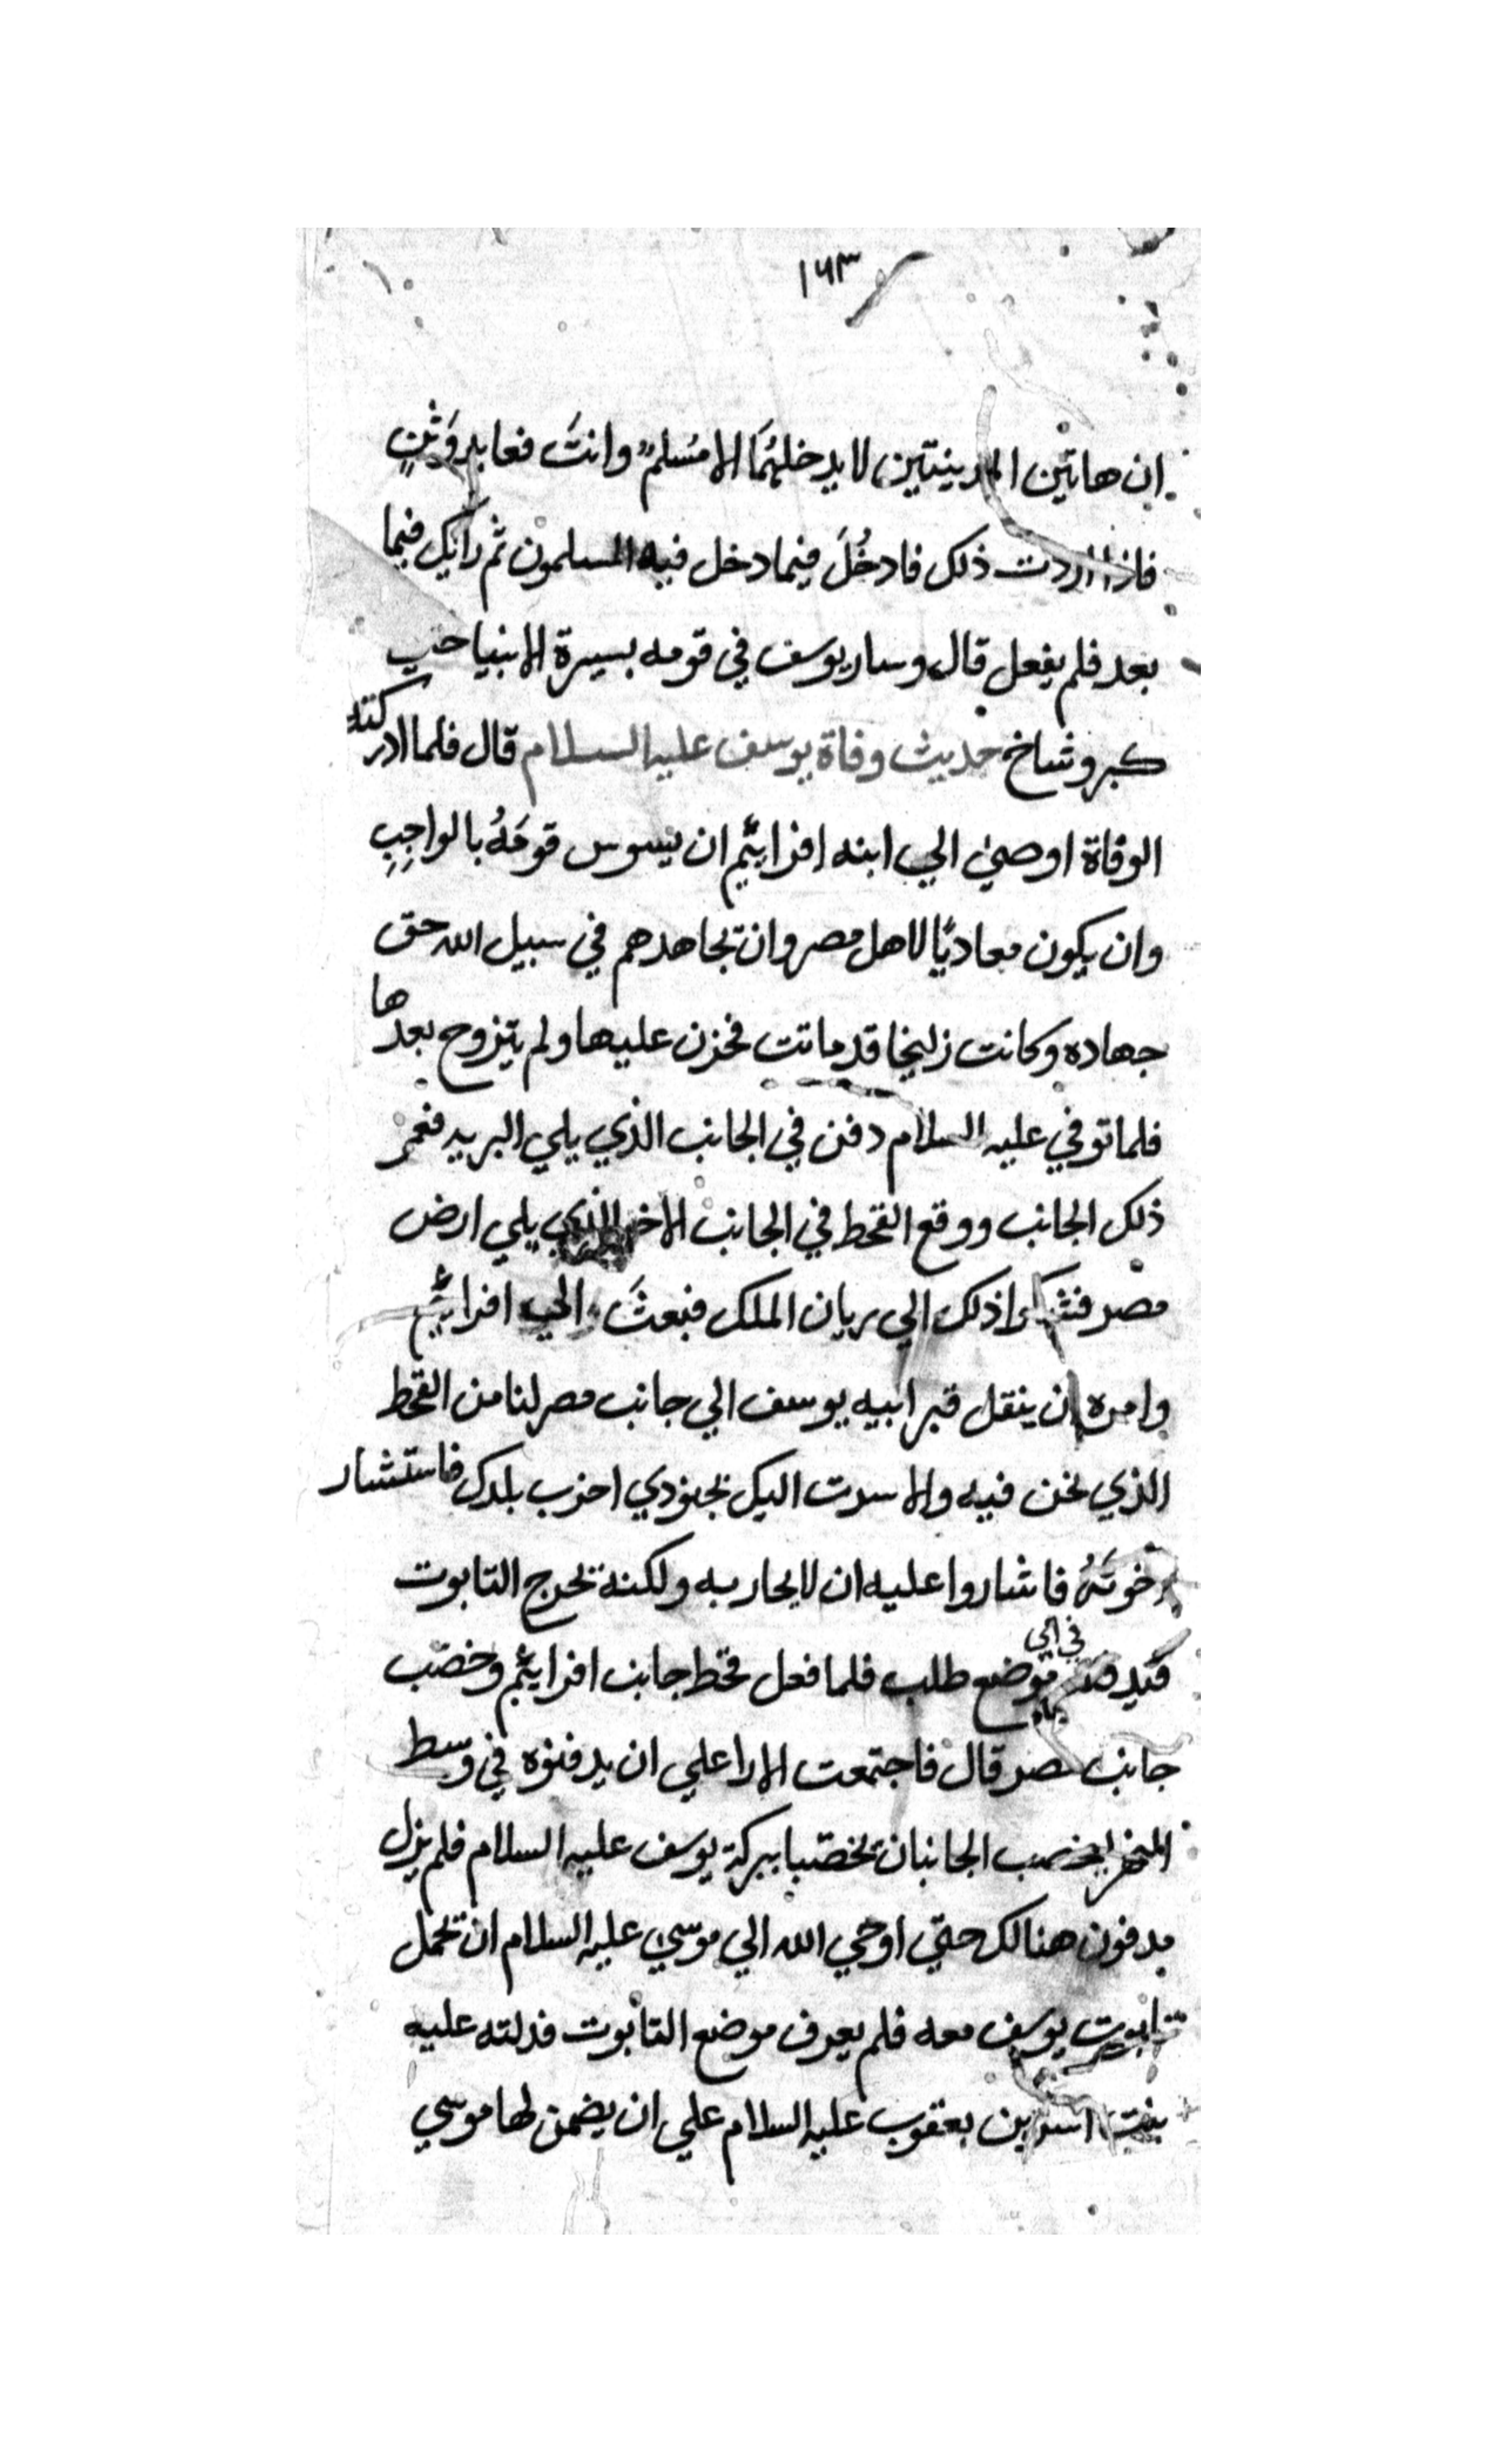 ١٦٣
ان هاتين المدينتين لا يدخلهُمَا الا مُسْلمٌ وانتَ فعابد وَثنٍ
فاذا اردت ذلك فادخُلَ فيما دخل فيه المسلمون ثم رايك فيما
بعد فلم يفعل قال وسار يوسف في قومه بسيرة الانبيا حتي
كبر وشاخ حديث وفاة يوسف عليه السلام قال فلما ادركته
الوفاة اوصيٰ الي ابنه افرائيم ان يسوس قومَهُ بالواجِبِ
وان يكون معاديًا لاهل مصر وان تجاهدهم في سبيل الله حق
جهاده وكانت زليخا قد ماتت فحزن عليها ولم يتزوج بعدها
فلما توفي عليه السلام دفن في الجانب الذي يلي البريه فعمر
ذلك الجانب ووقع القحط في الجانب الاخر الذي يلي ارض
مصر فشكوا ذلك الي ريان الملك فبعثَ الي افرائيم
وامره ان ينقل قبر ابيه يوسف الي جانب مصر لنا من القحط
الذي نحن فيه والا سرت اليك بجنودي اخرب بلدك فاستشار
اخوتَهُ فاشاروا عليه ان لا يحاربه ولكنه يخرج التابوت
فيدفنه في اي موضع طلب فلما فعل قحط جانب افرائيم وخصب
جانب مصر قال فاجتمعت الارا علي ان يدفنوه في وسط
النهر ليخصب الجانبان تخصبا ببركة يوسف عليه السلام فلم يزل
مدفون هنالك حتي اوحي الله الي موسي عليه السلام ان تحمل
تابوت يوسف معه فلم يعرف موضع التابوت فدلته عليه
بنت بن يعقوب عليه السلام علي ان يضمن لها موسي